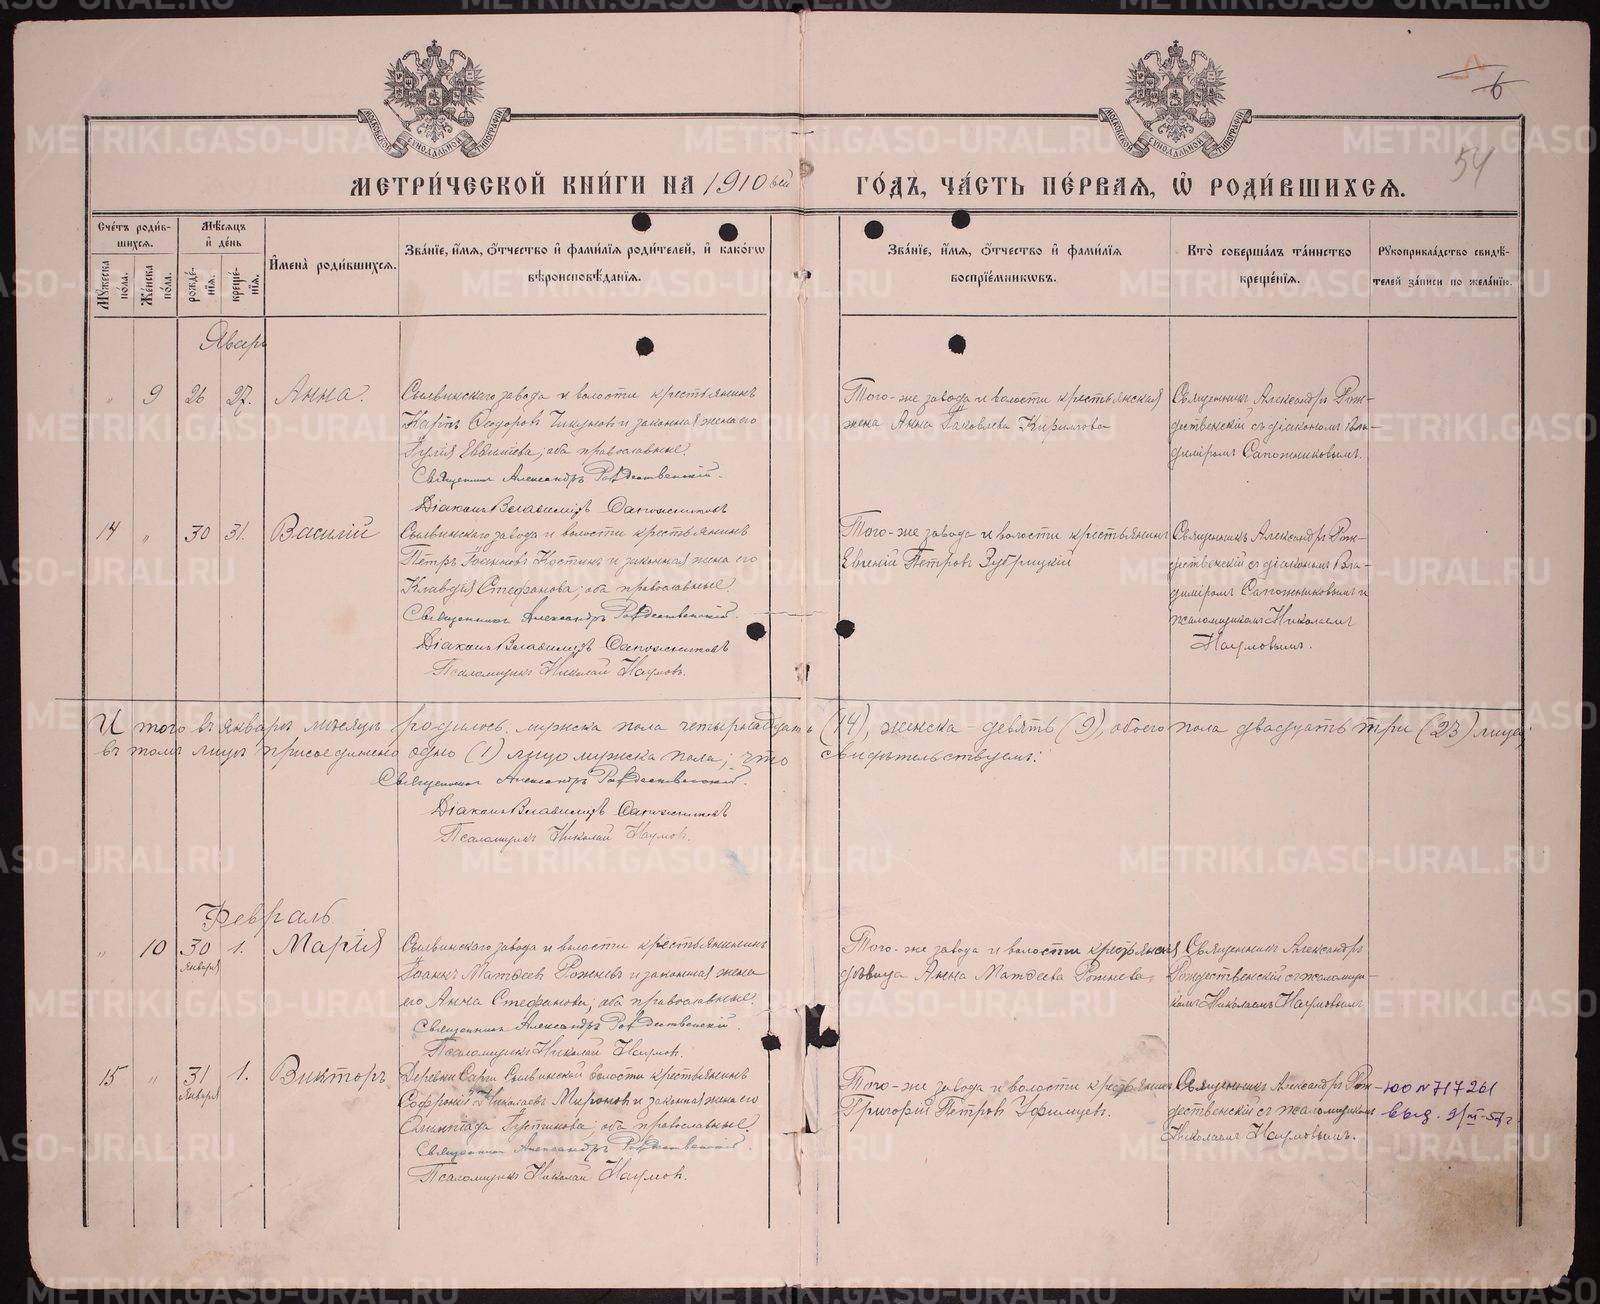 6
54
МЕТРИ́ЧЕСКОЙ КНИ́ГИ НА 1910 ый ГО́ДЪ, ЧА́СТЬ ПЕ́РВАЯ, Ѡ РОДИ́ВШИХСЯ.
Сче́тъ роди́в-
шихся.
Мѣ́сяцъ
и҆ де́нь
Мꙋ́жеска по́ла.
Же́нска по́ла.
рожде́-
нїя.
креще́-
нїя.
И҆мена̀ роди́вшихся.
Зва́нїе, и҆́мя, ѻ҆́тчество и҆ фами́лїя роди́телей, и҆ како́гѡ
вѣроисповѣ́данїя.
Зва́нїе, и҆́мя, ѻ҆́тчество и҆ фами́лїя
воспрїе́мникѡвъ.
Кто̀ соверша́лъ та́инство
креще́нїя.
Рꙋкоприкла́дство свидѣ́-
телей за́писи по жела́нїю.
Январь
" 9 26 27. Анна.
Сылвинскаго завода и волости крестьянинъ
Карпъ Ѳеодоровъ Чикуновъ и законная жена его
Іулія Евѳиміева; оба православные.
Священникъ Александръ Рождественскій.
Діаконъ Владиміръ Сапожниковъ
Того-же завода и волости крестьянская
жена Анна Іаковлева Кириллова
Священникъ Александръ Рож-
дественскій съ діакономъ Вла-
диміромъ Сапожниковымъ.
14 " 30 31. Василій
Сылвинскаго завода и волости крестьянинъ
Петръ Іоанновъ Костинъ и законная жена его
Клавдія Стефанова; оба православные.
Священникъ Александръ Рождественскій.
Діаконъ Владиміръ Сапожниковъ
Псаломщикъ Николай Наумовъ.
Того-же завода и волости крестьянинъ
Евгеній Петровъ Зубрицкій
Священникъ Александръ Рож-
дественскій съ діакономъ Вла-
диміромъ Сапожниковымъ и
псаломщикомъ Николаемъ
Наумовымъ.
Итого въ январѣ мѣсяцѣ родилось мужска пола четырнадцать (14), женска - девять (9), обоего пола двадцать три (23) лица;
въ томъ лицѣ присоединено одно (1) лицо мужска пола; что свидѣтельствуемъ:
Священникъ Александръ Рождественскій.
Діаконъ Владиміръ Сапожниковъ
Псаломщикъ Николай Наумовъ.
Февраль.
" 10 30 января 1. Марія
Сылвинскаго завода и волости крестьянинъ
Іоаннъ Матѳеевъ Рожневъ и законная жена
его Анна Стефанова; оба православные.
Священникъ Александръ Рождественскій.
Псаломщикъ Николай Наумовъ.
Того-же завода и волости крестьянская
дѣвица Анна Матѳеева Рожнева
Священникъ Александръ
Рождественскій съ псаломщи-
комъ Николаемъ Наумовымъ
15 " 31 января 1. Викторъ
Деревни Сарги Сылвинской волости крестьянинъ
Софроній Николаевъ Мироновъ и законная жена его
Олимпіада Іустинова; оба православные.
Священникъ Александръ Рождественскій
Псаломщикъ Николай Наумовъ.
Того-же завода и волости крестьянинъ
Григорій Петровъ Уфимцевъ.
Священникъ Александръ Рож-
дественскій съ псаломщикомъ
Николаемъ Наумовымъ.
ЮО № 717261
METRIKI.GASO-URAL.RU